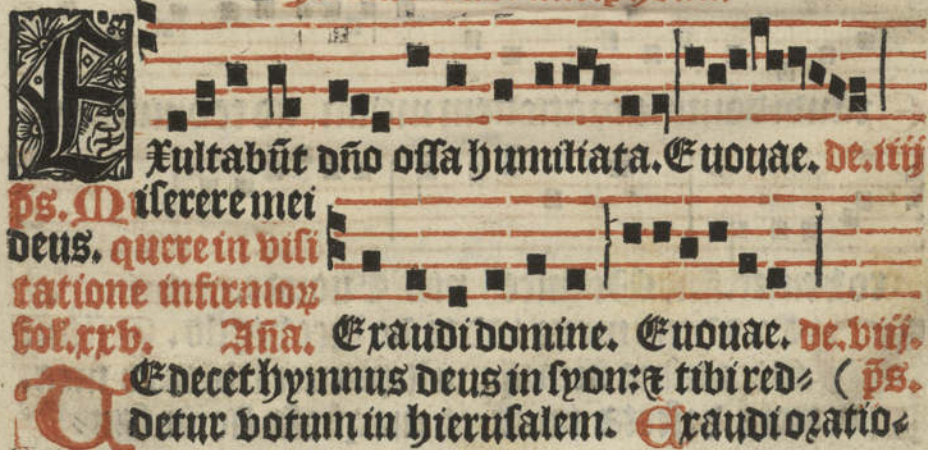 EXultabūt dño ossa humiliata. Euouae. de. iiij
p̄s. Miserere mei
deus. quere in visi
tatione infirmoꝝ
fol. xxv. Aña. Exaudi domine. Euouae. de. viij.
TE decet hymnus deus in syon: ⁊ tibi red⸗ ( p̄s.
detur votum in hierusalem. Exaudi oratio⸗